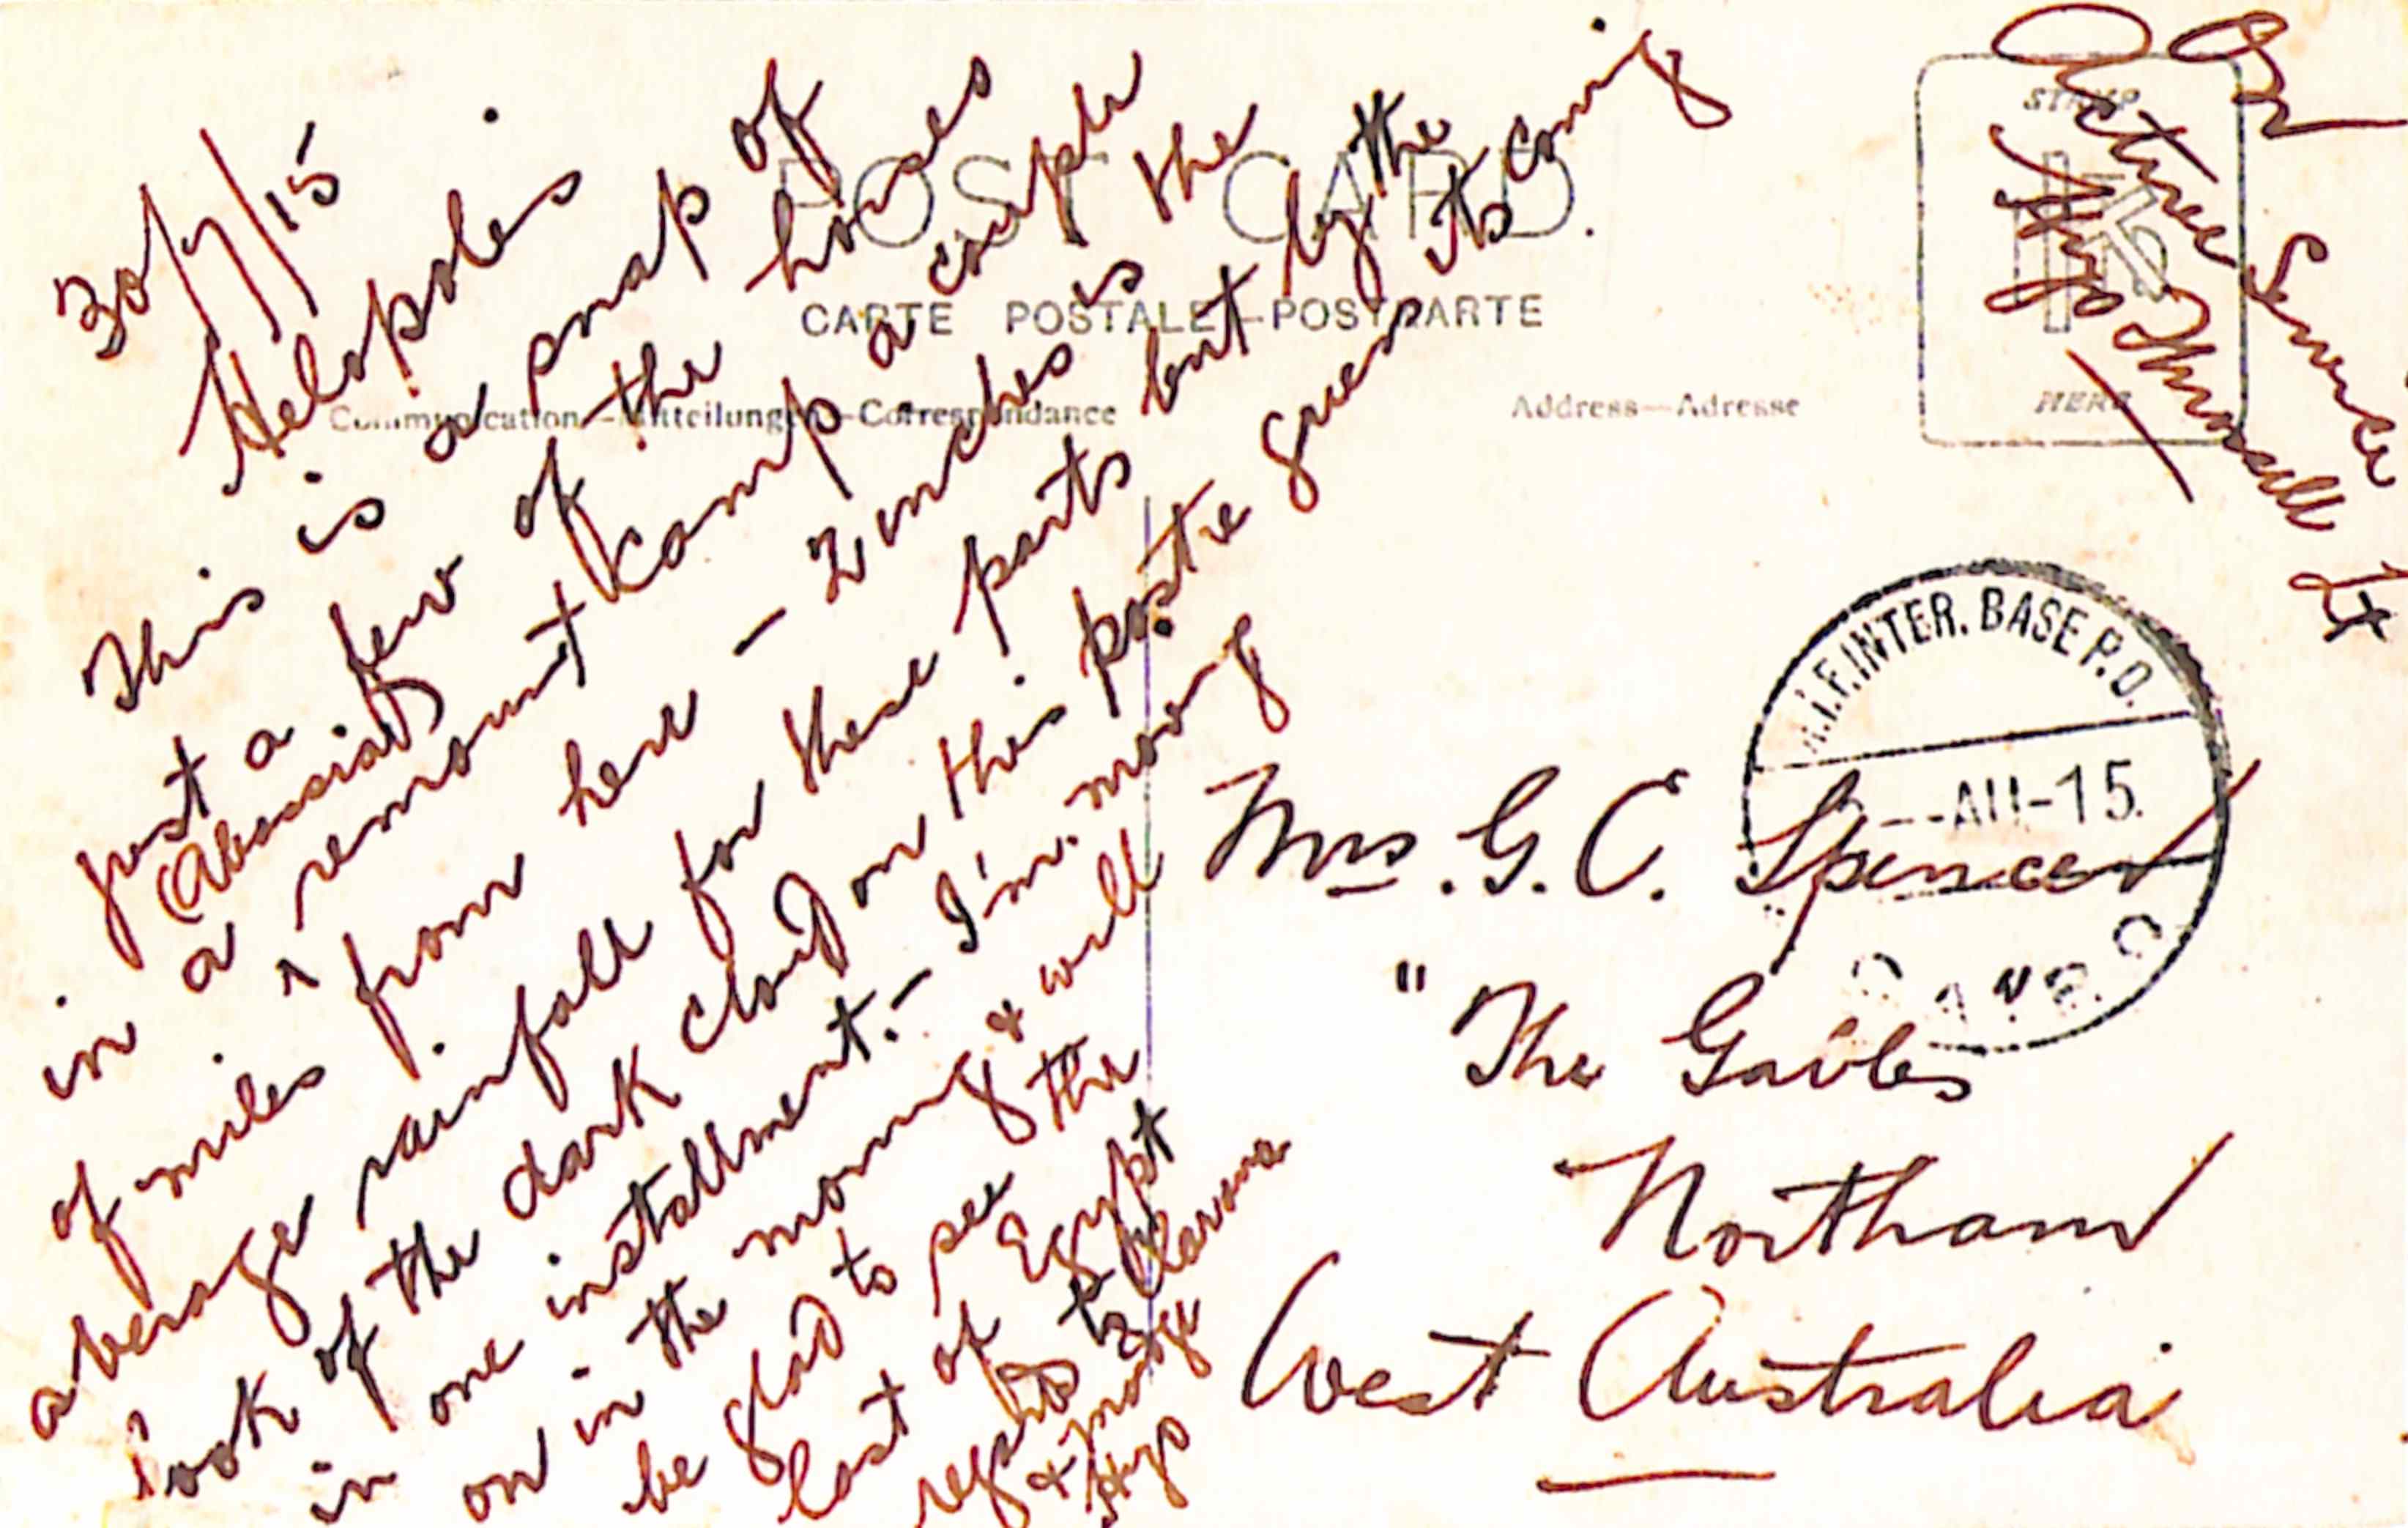 30/7/15
Heloposles
This is a snap of
just a few of the horses
(Abassia)
in a remount camp a couple
of miles from here – 2 inches is the
average rainfall for these parts but by the
look of the dark cloud on this postie guess its coming
in one installment. – I'm moving
on in the morning & will
be glad to see the
last of Egypt
regards to Clarvone
& Marge
Hugo
POST CARD.
CARTE POSTALE – POSTKARTE
Communication – Mitteilungen – Correspondance
Address – Adresse
STAMP
HERE
On
Active Service
Hugo Throssell Lt
A.I.F. INTER. BASE P.O.
--AU-15.
Mrs. G. C. Spencer
"The Gables
Northam
West Australia